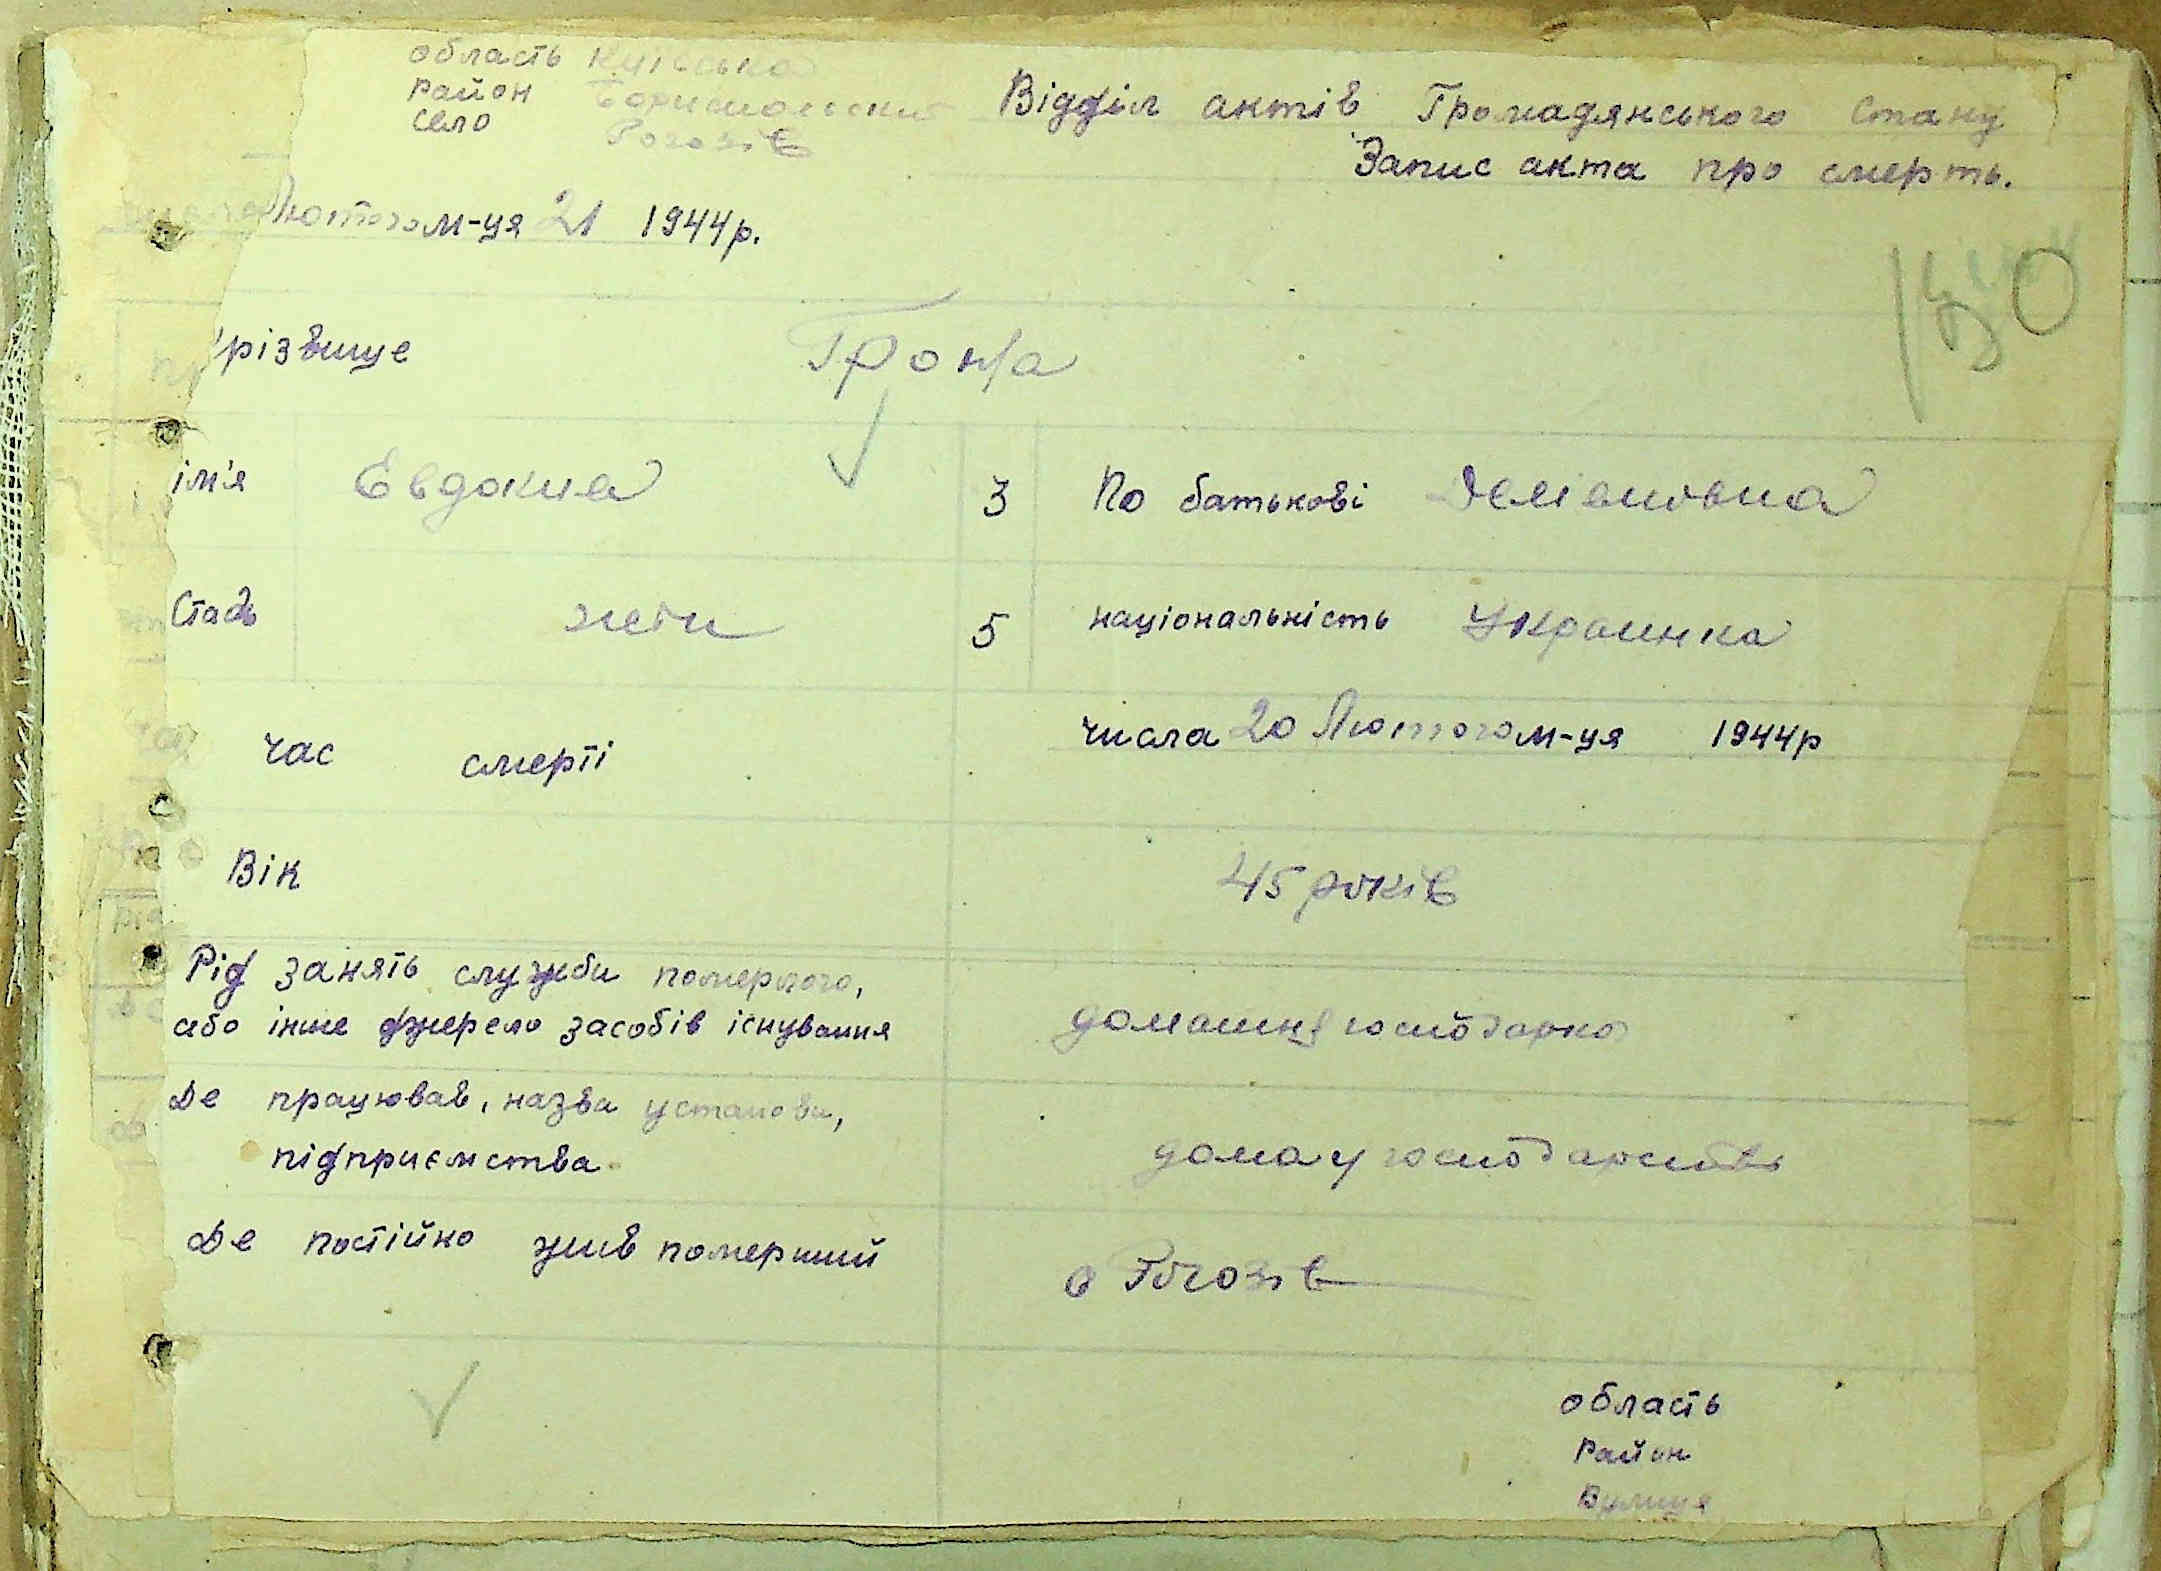 область Київська
район Бориспольский
село Рогозів
Відділ актів Громадянського стану
Запис акта про смерть.
Лютого м-ця 21 1944р.
150
різвище Грона
ім'я Евдокиа 3 По батькові Деміановна
Стать жін 5 національність Украинка
час смерті числа 20 Лютого м-ця 1944р
Вік 45 років
Рід занять служби померлого,
або інше джерело засобів існування домашня господарка
Де працював, назва установи,
підприємства дома у господарстві
Де постійно жив померший с Рогозів
область
район
вулиця